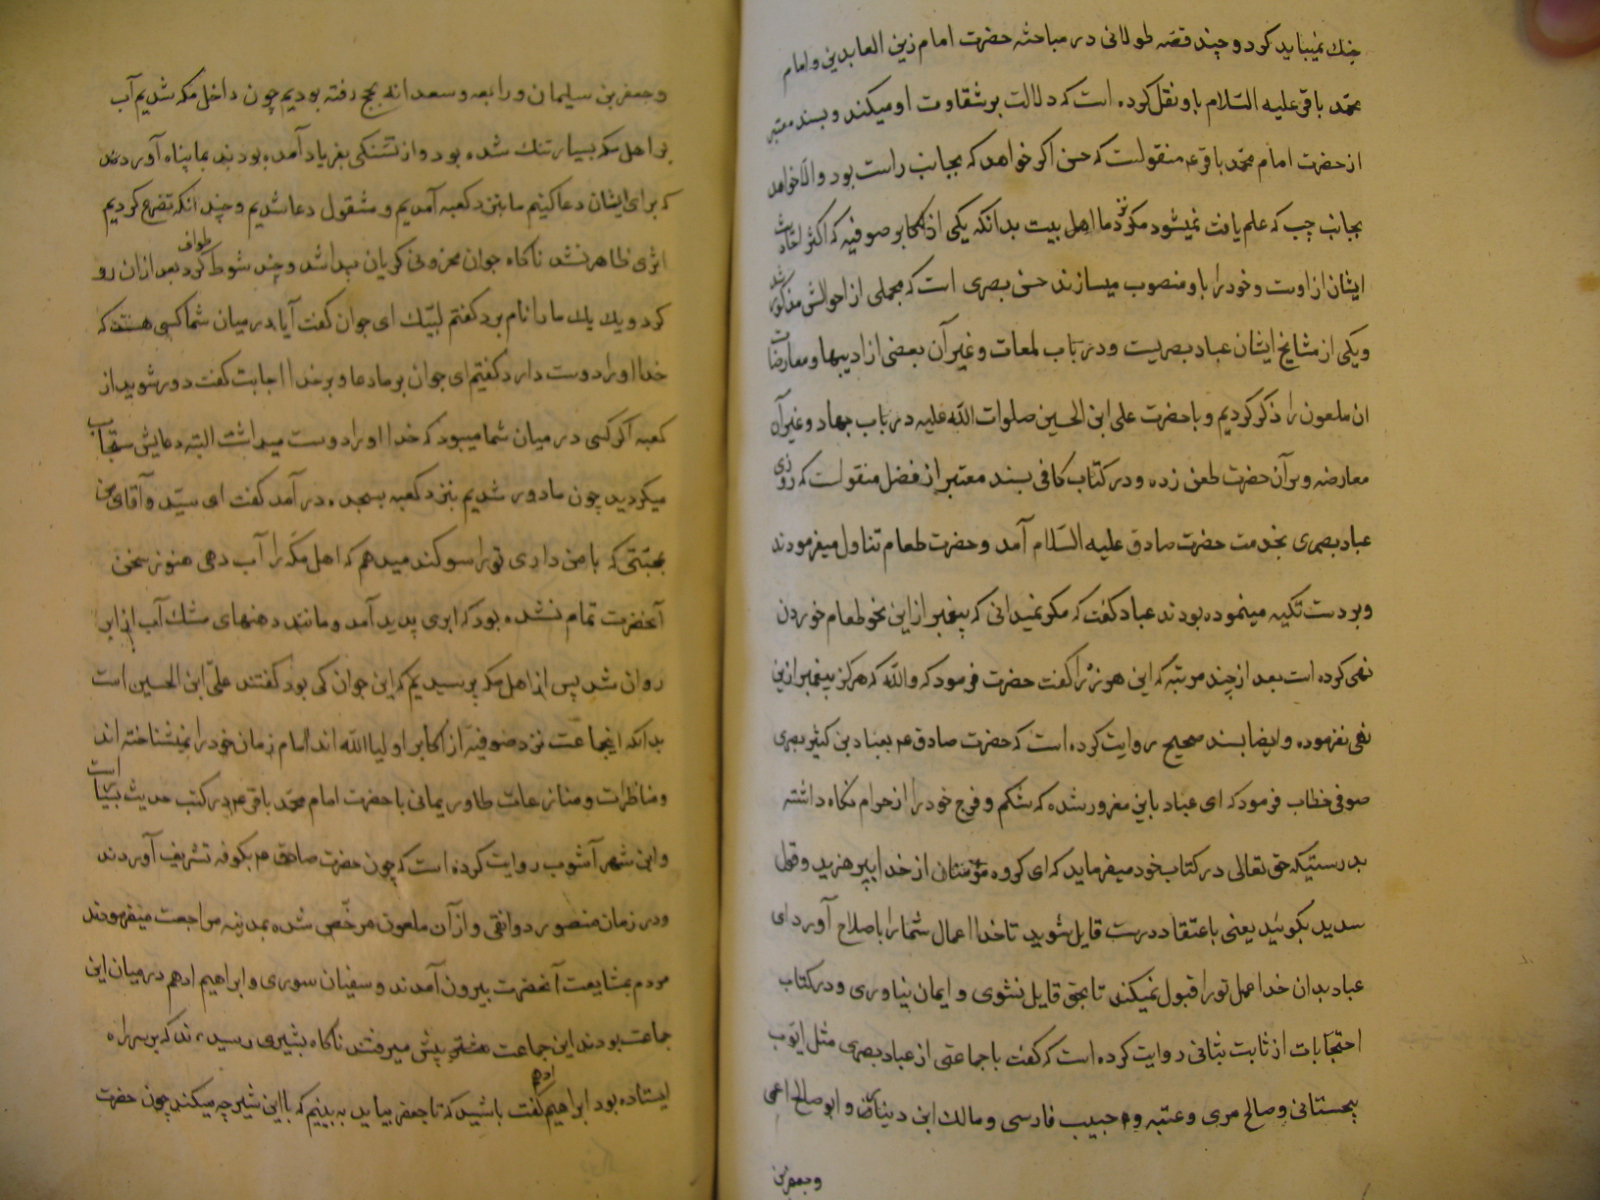 جنك نميبايد كرد و چند قصّه طولانى در مباحثه حضرت امام زين العابدين و امام
محمّد باقر عليه السّلام باو نقل كرده است كه دلالت بر شقاوت او ميكند و بسند معتبر
از حضرت امام محمّد باقر ع منقولست كه حسن اكر خواهد كه بجانب راست برود و الّا خواهد
بجانب چپ كه علم يافت نميشود مكر نزد ما اهل بيت بدانكه يكى از اكابر صوفيه كه اكثر
ايشان از اوست و خود را باو منصوب ميسازند حسن بصرى است كه مجملى از احوالش مذكور شد
و يكى از مشايخ ايشان عباد بصريست و در باب لمعات و غير آن بعضى از ادبيها و معارضات
ان ملعون را ذكر كرديم و با حضرت على ابن الحسين صلوات اللّه عليه در باب جهاد و غير آن
معارضه و بر آن حضرت طعن زده و در كتاب كافى بسند معتبر از فضل منقولست كه روزى
عباد بصرى بخدمت حضرت صادق عليه السّلام آمد و حضرت طعام تناول ميفرمودند
و بر دست تكيه مينموده بودند عباد كفت كه مكر نميدانى كه پيغمبر از اين نحو طعام خوردن
نهى كرده است بعد از چند مرتبه كه اين هرزه را كفت حضرت فرمود كه و اللّه كه هركز پيغمبر ازين
نهى نفرموده و ايضا بسند صحيح روايت كرده است كه حضرت صادق ع بعباد بن كثير بصرى
صوفى خطاب فرمود كه اى عباد باين مغرور شده كه شكم و فرج خود را از حرام نكاه داشته
بدرستيكه حق تعالى در كتاب خود ميفرمايد كه اى كروه مؤمنان از خدا بپرهيزيد و قول
سديد بكوئيد يعنى باعتقاد درست قايل شويد تا خدا اعمال شما را باصلاح آورد اى
عباد بدان خدا عمل تو را قبول نميكند تا بحق قايل نشوى و ايمان نياورى و در كتاب
احتجابات از ثابت بنانى روايت كرده است كه كفت با جماعتى از عباد بصرى مثل ايوب
سجستانى و صالح مرى و عتبه و حبيب فارسى و مالك ابن دينار و ابو صالح اعمى
و جعفر بن
و جعفر بن سليمان و رابعه و سعدانه بحج رفته بوديم چون داخل مكه شديم آب
بر اهل مكه بسيار تنك شده بود و از تشنكى بفرياد آمده بودند بما پناه آوردند
كه براى ايشان دعا كنيم ما بنزد كعبه آمديم و مشغول دعا شديم و چند انكه تضرع كرديم
اثرى ظاهر نشد ناكاه جوان محزونى كريان پيدا شد و چند شوط طواف كرد بعد از ان رو
كرد و يك يك ما را نام برد كفتم لبّيك اى جوان كفت آيا در ميان شما كسى هست كه
خدا او را دوست دارد كفتم اى جوان بر ما دعا و بر خدا اجابت كفت دور شويد از
كعبه اكر كسى در ميان شما ميبود كه خدا او را دوست ميداشت البته دعايش مستجاب
ميكرديد چون ما دور شديم بنزد كعبه بسجده در آمد كفت اى سيّد و آقاى من
بمحبّتى كه با من دارى تو را سوكند ميدهم كه اهل مكّه را آب دهى هنوز سخن
آنحضرت تمام نشده بود كه ابرى پديد آمد و مانند دهنهاى مشك آب از ابر
روان شد پس از اهل مكه پرسيديم كه اين جوان كى بود كفتند علىّ ابن الحسين است
بدانكه اينجماعت نزد صوفيّه از اكابر اوليا اللّه اند امام زمان خود را نميشناخته اند
و مناظرت و منازعات طاوس يمانى با حضرت امام محمّد باقر ع در كتب حديث بسيار است
و ابن شهر آشوب روايت كرده است كه چون حضرت صادق ع بكوفه تشريف آوردند
و در زمان منصور دوانقى و از آن ملعون مرخّص شده بمدينه مراجعت ميفرمودند
مردم بمشايعت آنحضرت بيرون آمدند و سفيان سورى و ابراهيم ادهم در ميان اين
جماعت بودند اين جماعت پيش ميرفتند ناكاه بشيرى رسيدند كه بر سر راه
ايستاده بود ابراهيم ادهم كفت باشيد كه تا جعفر بيايد به بينيم كه با اين شير چه ميكند چون حضرت